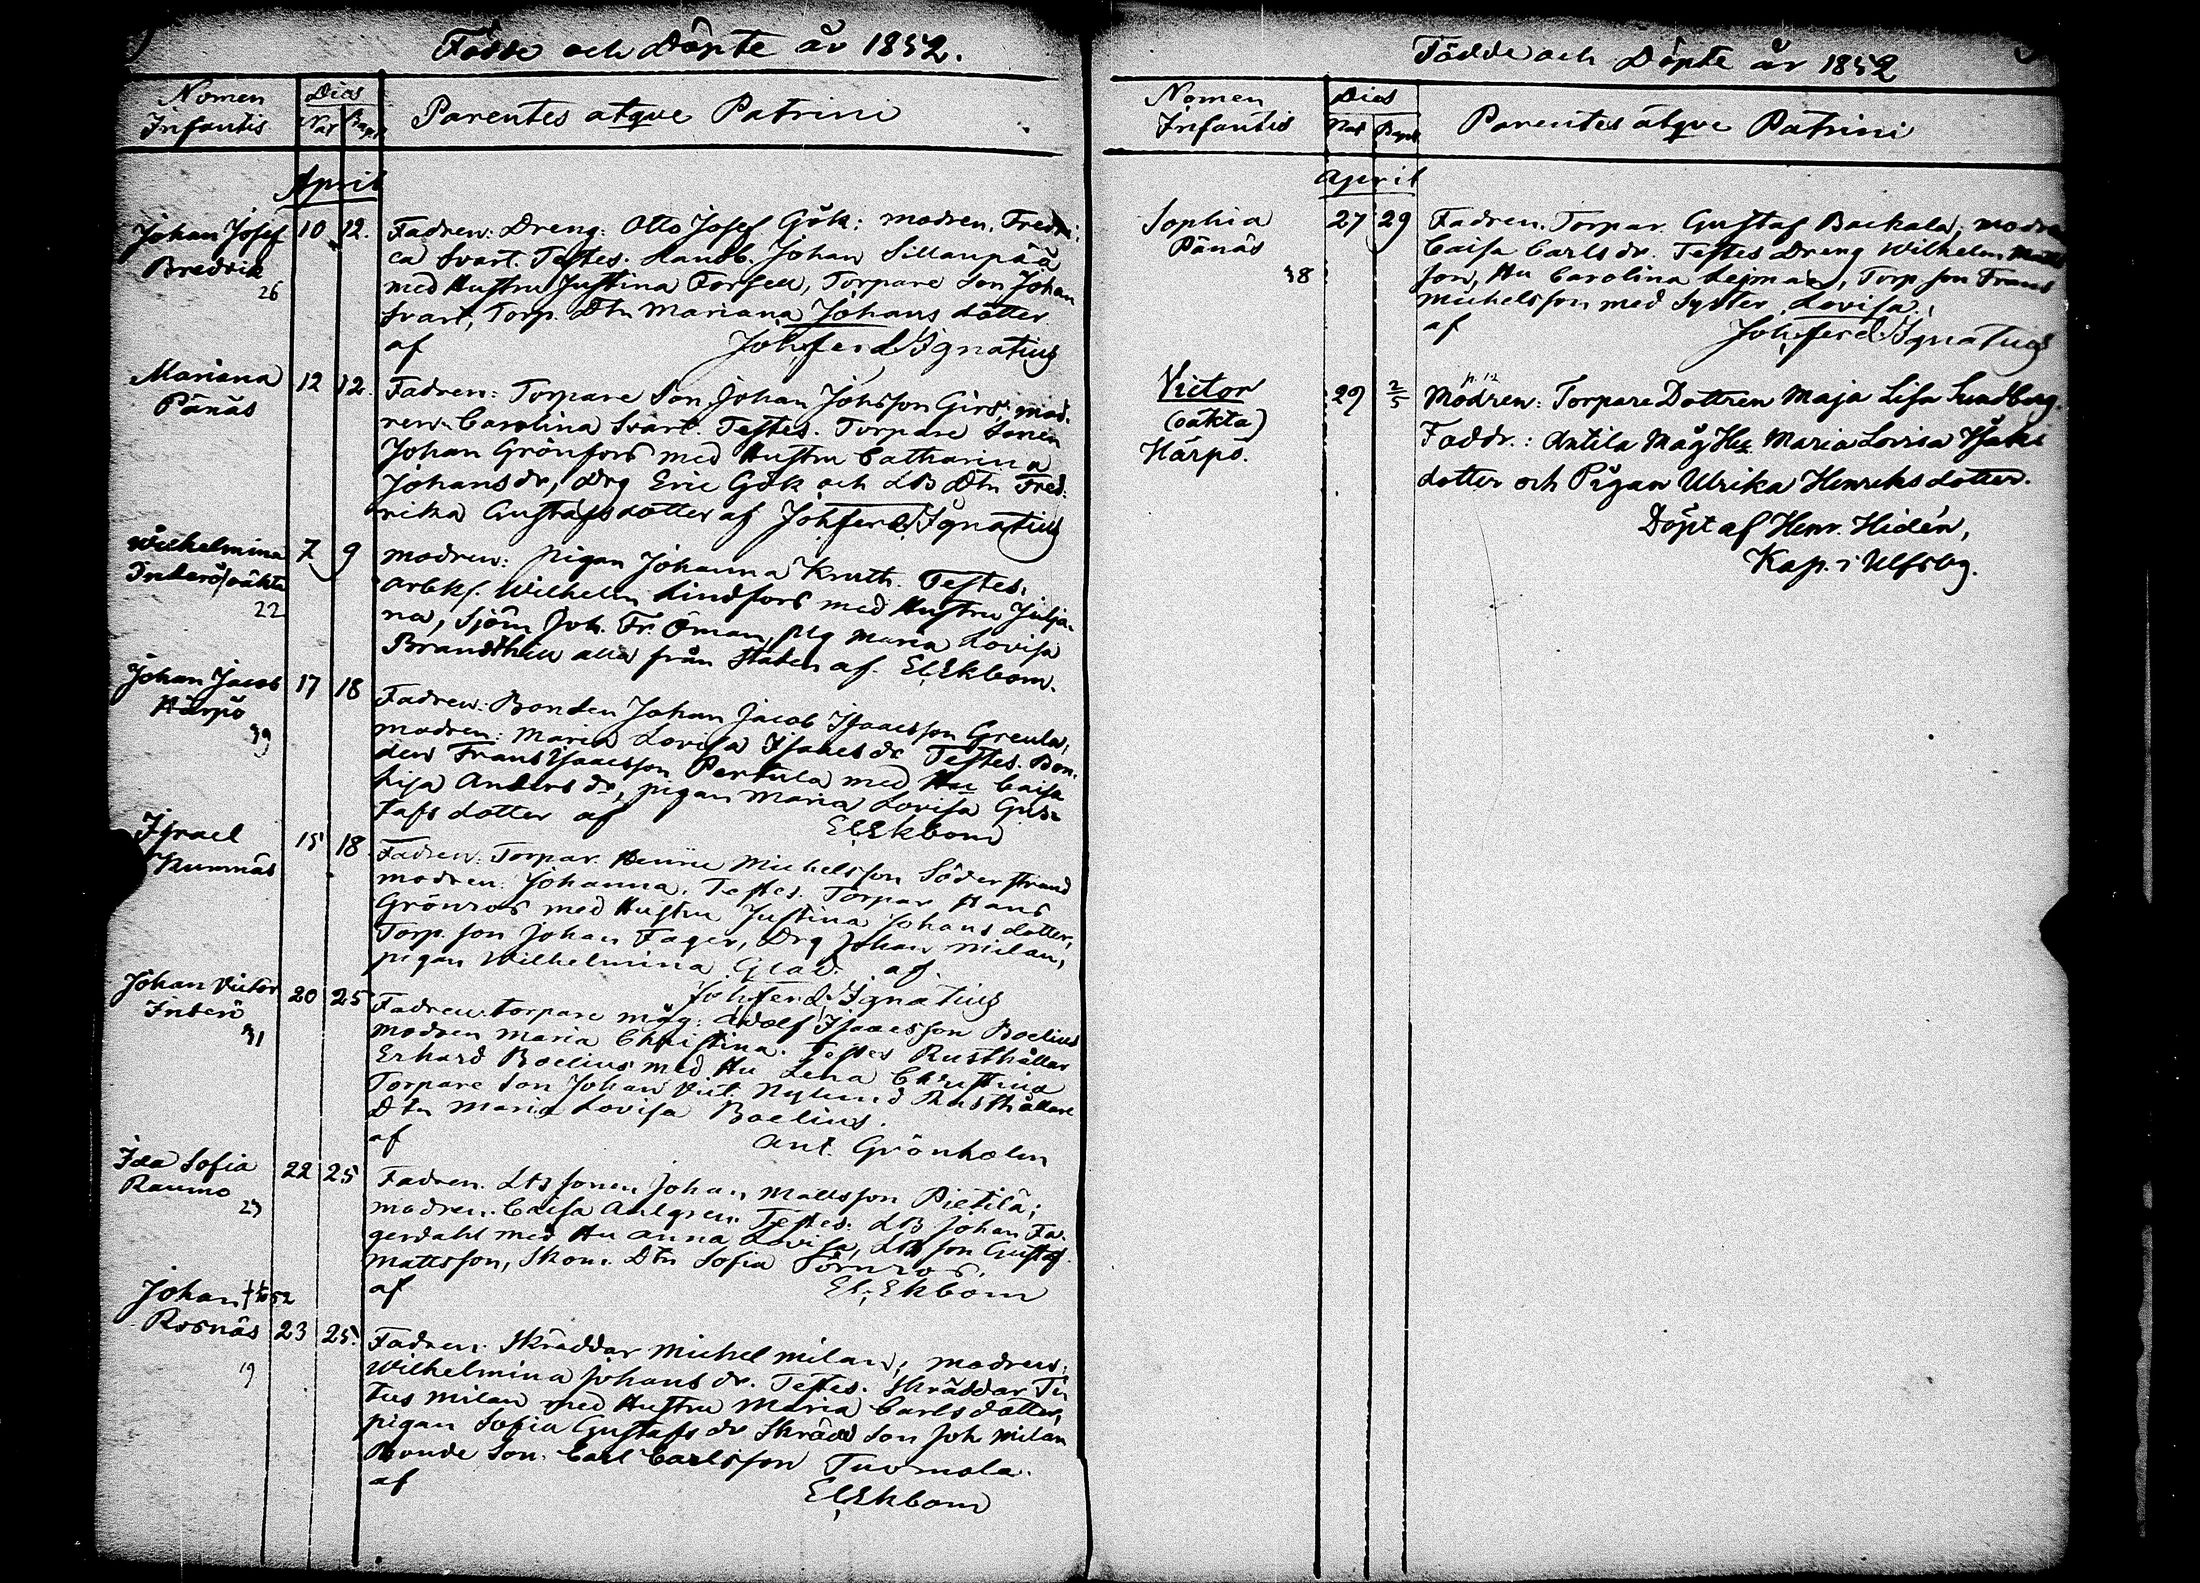 Födde och Döpte år 1852.
Nomen Infantis
Dies
Nat Bapt
Parentes atque Patrini
April
Johan Josef
Bredvik
26
10 12.
Fadren: Dreng. Otto Josef Gök; modren, Fredri-
ca Svart. Testes. Landb. Johan Sillanpää
med Hustru Justina Forsell, Torpare Son Johan
Svart, Torp. Dtn Mariana Johans dotter
af Joh. ferd. Ignatius
Mariana
Pänäs
12 12.
Fadren: Torpare Son Johan Johsson Girs, mod-
ren Carolina Svart. Testes. Torpare Sonen
Johan Grönfors med Hustru Catharina
Johansdr, Drg Eric Gök och LB Dtn Fred-
rika Gustafsdotter af Joh ferd Ignatius
Wilhelmina
Inderö/oäkta
22
7 9
modren: pigan Johanna Kruth. Testes.
Arbk. Wilhelm Lindfors med Hustru Julja-
na, Sjöm Joh. Fr. Öman, Pig Maria Lovisa
Brandthill alla från Staden af. El. Ekbom.
Johan Jacob
Härpö
39
17 18
Fadren: Bonden Johan Jacob Isaacsson Greula,
modren: Maria Lovisa Isaacs dr Testes. Bon-
den Frans Isaacsson Pertula med Hu Caisa
Lisa Anders dr, pigan Maria Lovisa Gus-
tafs dotter af El. Ekbom
Israel
Kumnäs
15 18
Fadren: Torpar. Henric Michelsson Söderstrand
modren: Johanna. Testes. Torpar Hans
Grönroos med Hustru Justina Johans dotter,
Torp. son Johan Fager, Drg Johan Milan,
pigan Wilhelmina Glad. af.
Joh ferd. Ignatius
Johan Victor
Inderö
31
20 25
Fadren: torpare måg: Adolf Isaacsson Boelius
modren Maria Christina. Testes Rusthållar
Erhard Boelius med Hu Lena Christina
Torpare Son Johan Vict. Nylund Rusthållare
Dtn Maria Lovisa Boelius.
af Ant. Grönholm
Ida Sofia
Raumo
23
22 25
Fadren. LB sonen Johan Mattsson Pietilä;
modren. Caisa Ahlgren. Testes. LB Johan Fa-
gerdahl med Hu Anna Lovisa, LB son Gustaf
Mattsson, Skom. Dtn Sofia Törnroos.
af El. Ekbom
Johan
Rosnäs
19
23 25.
Fadren. Skräddar Michel Milan; modren,
Wilhelmina Johans dr. Testes. Skräddar Ti-
tus Milan med Hustru Maria Carls dotter,
pigan Sofia Gustafs dr Skrädd Son Joh Milan
Bonde Son. Carl Carlsson Tuomola.
af El. Ekbom
Födde och Döpte år 1852
Nomen Infantis
Dies
Nat Bapt
Parentes atque Patrini
April
Sophia
Pänäs
38
27 29
Fadren. Torpar. Gustaf Backala; modren
Caisa Carls dr. Testes Dreng Wilhelm Matts
son, Hu Carolina Lejman, Torp son Frans
Michelsson med Syster Lovisa.
af Joh. ferd. Ignatius
Victor
(oäkta)
Härpö.
29 2/5
Modren: Torpare Dottren Maja Lisa Sundberg.
Faddr.: Antila Måg Hu Maria Lovisa Isaks
dotter och Pigan Ulrika Henriksdotter.
Döpt af Henr. Hidén,
Kap. i Ulfsby.